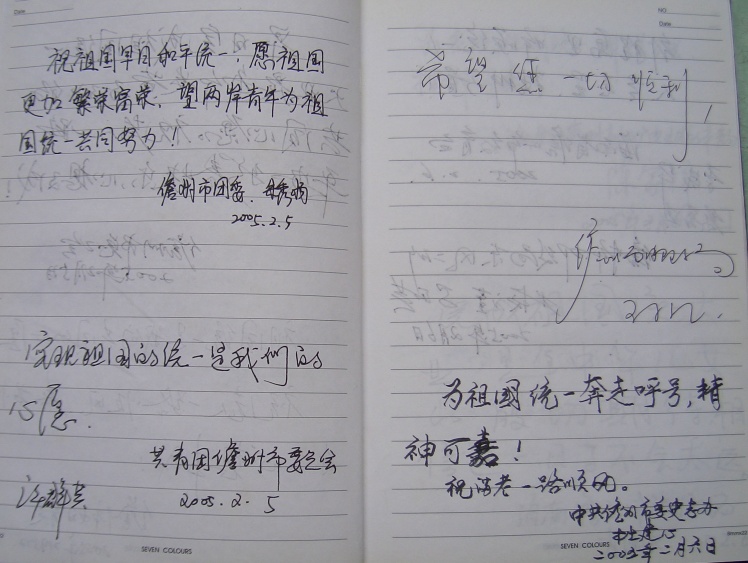 Date
祝祖国早日和平统一,愿祖国
更加繁荣富荣,望两岸青年为祖
国统一共同努力!
儋州市团委
2005.2.5
实现祖国的统一是我们的
心愿.
共青团儋州市委员会
2005.2.5
SEVEN COLOURS
NO
Date
希望您一切顺利!
为祖国统一奔走呼号,精
神可嘉!
祝 老一路顺风。
中共儋州市委史志办
2005年二月六日
SEVEN COLOURS